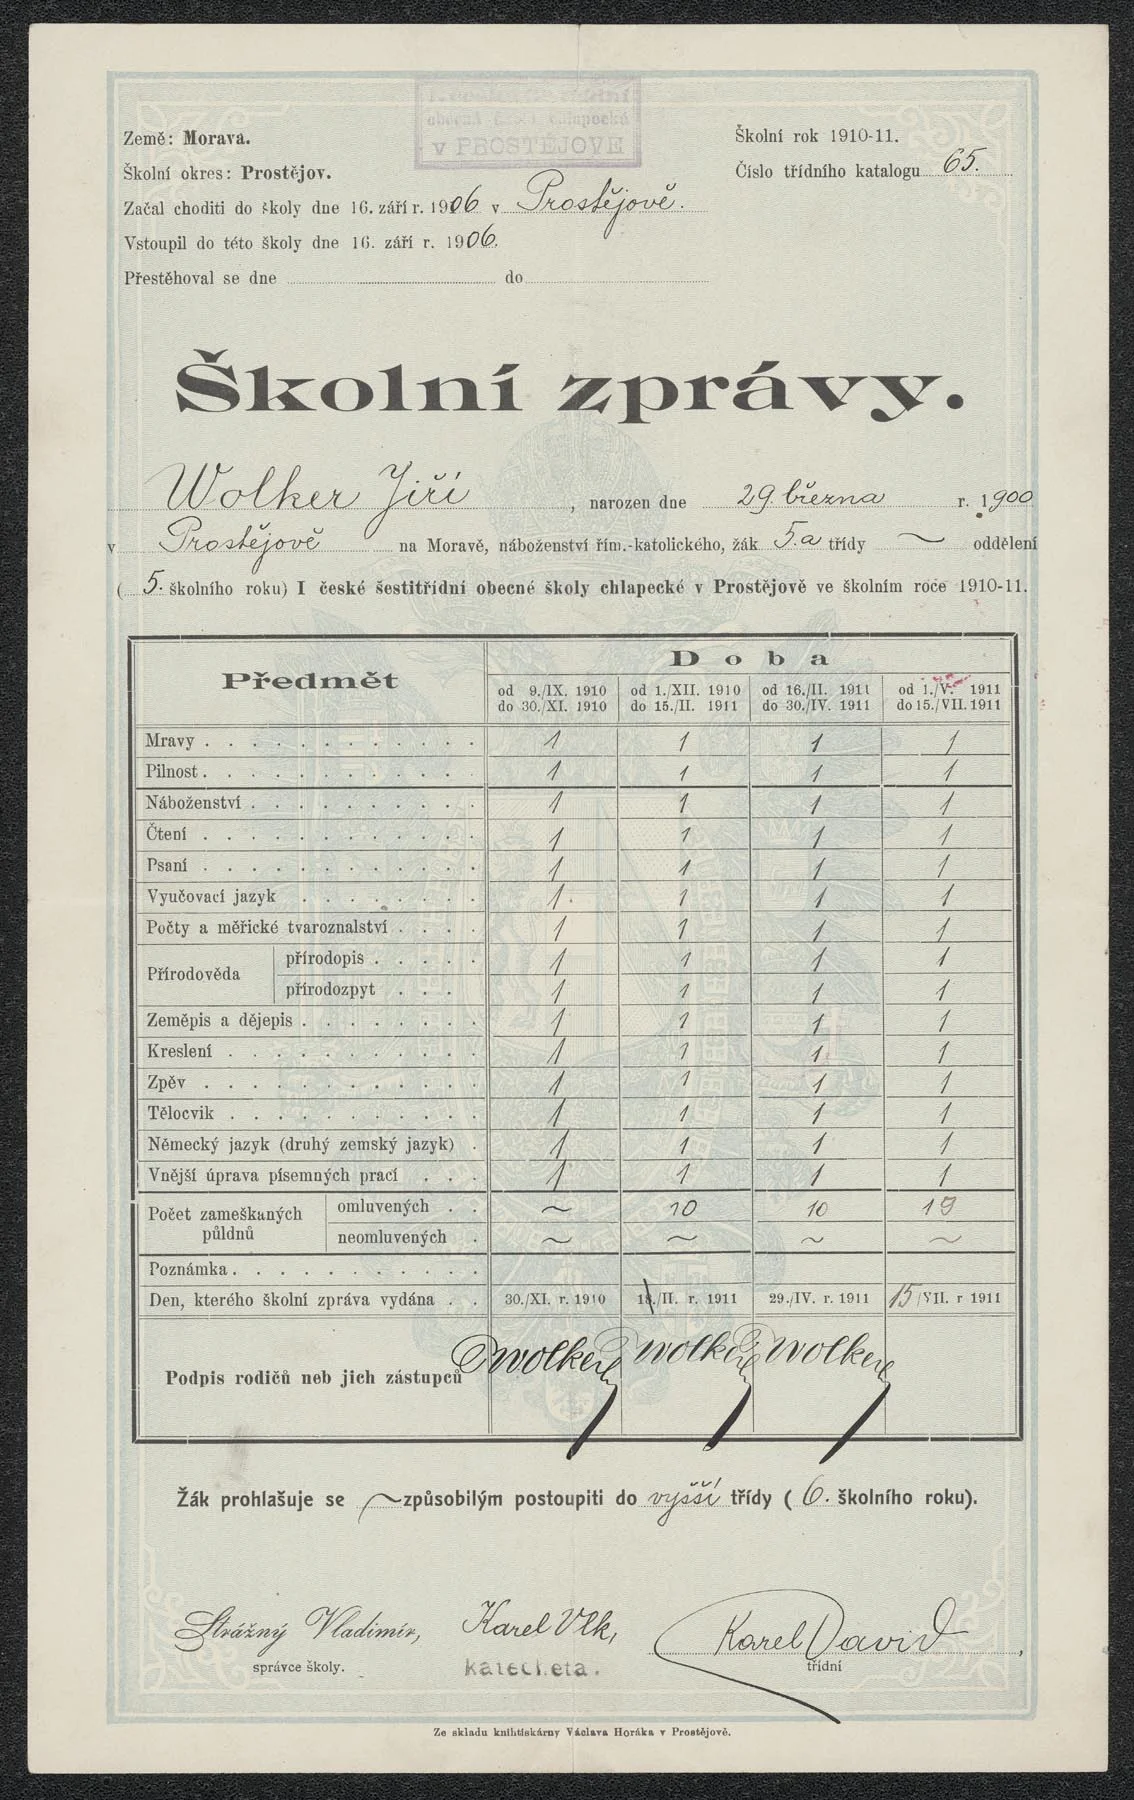 v PROSTĚJOVĚ
Země: Morava.
Školní rok 1910-11.
Školní okres: Prostějov.
Číslo třídního katalogu 65.
Začal choditi do školy dne 16. září r. 1906 v Prostějově.
Vstoupil do této školy dne 16. září r. 1906.
Přestěhoval se dne do
Školní zprávy.
Wolker Jiří, narozen dne 29. března r. 1900
v Prostějově na Moravě, náboženství řím.-katolického, žák 5.a třídy ~ oddělení
( 5. školního roku) I české šestitřídní obecné školy chlapecké v Prostějově ve školním roce 1910-11.
Předmět Doba
od 9./IX. 1910 od 1./XII. 1910 od 16./II. 1911 od 1./V. 1911
do 30./XI. 1910 do 15./II. 1911 do 30./IV. 1911 do 15./VII. 1911
Mravy . . . . . . . . . . . . 1 1 1 1
Pilnost . . . . . . . . . . . . 1 1 1 1
Náboženství . . . . . . . . . . 1 1 1 1
Čtení . . . . . . . . . . . . 1 1 1 1
Psaní . . . . . . . . . . . . 1 1 1 1
Vyučovací jazyk . . . . . . . . 1 1 1 1
Počty a měřické tvaroznalství . . . . 1 1 1 1
Přírodověda přírodopis . . . . . 1 1 1 1
přírodozpyt . . . 1 1 1 1
Zeměpis a dějepis . . . . . . . . 1 1 1 1
Kreslení . . . . . . . . . . . 1 1 1 1
Zpěv . . . . . . . . . . . . 1 1 1 1
Tělocvik . . . . . . . . . . . 1 1 1 1
Německý jazyk (druhý zemský jazyk) . 1 1 1 1
Vnější úprava písemných prací . . . 1 1 1 1
Počet zameškaných půldnů omluvených . . ~ 10 10 19
neomluvených . ~ ~ ~ ~
Poznámka . . . . . . . . . . .
Den, kterého školní zpráva vydána . . 30./XI. r. 1910 18./II. r. 1911 29./IV. r. 1911 15/VII. r 1911
Podpis rodičů neb jich zástupců Wolker Wolker Wolker
Žák prohlašuje se ~ způsobilým postoupiti do vyšší třídy ( 6. školního roku).
Strážný Vladimír, Karel Vlk, Karel David,
správce školy. katecheta. třídní
Ze skladu knihtiskárny Václava Horáka v Prostějově.